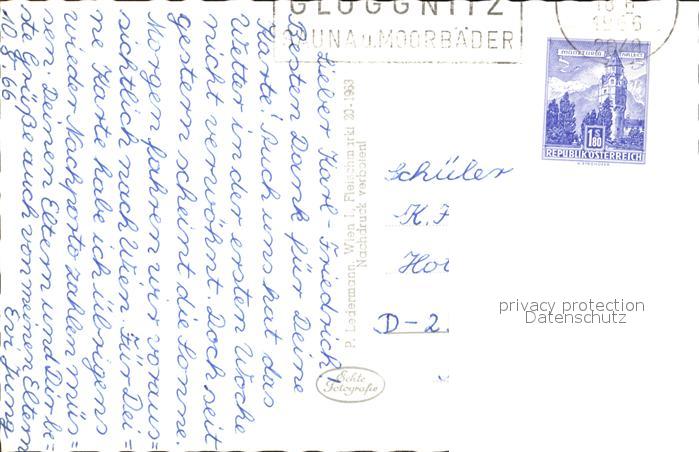 GLOGGNITZ
SAUNA u. MOORBÄDER
1966
Münzturm
REPUBLIK ÖSTERREICH
S
1.80
Lieber Karl-Friedrich!
Besten Dank für Deine
Karte! Auch uns hat das
Wetter in der ersten Woche
nicht verwöhnt. Doch seit
gestern scheint die Sonne.
Morgen fahren wir voraus=
sichtlich nach Wien. Für Dei=
ne Karte habe ich übrigens
wieder Nachporto zahlen müs=
sen. Deinen Eltern und Dir be=
ste Grüße auch von minen Eltern
10.8.66
P. Ledermann, Wien I, Fleischmarkt 20 - 1963
Nachdruck verboten!
Echte
Fotografie
Schüler
K. F
Hot
D-2
privacy protection
Datenschutz